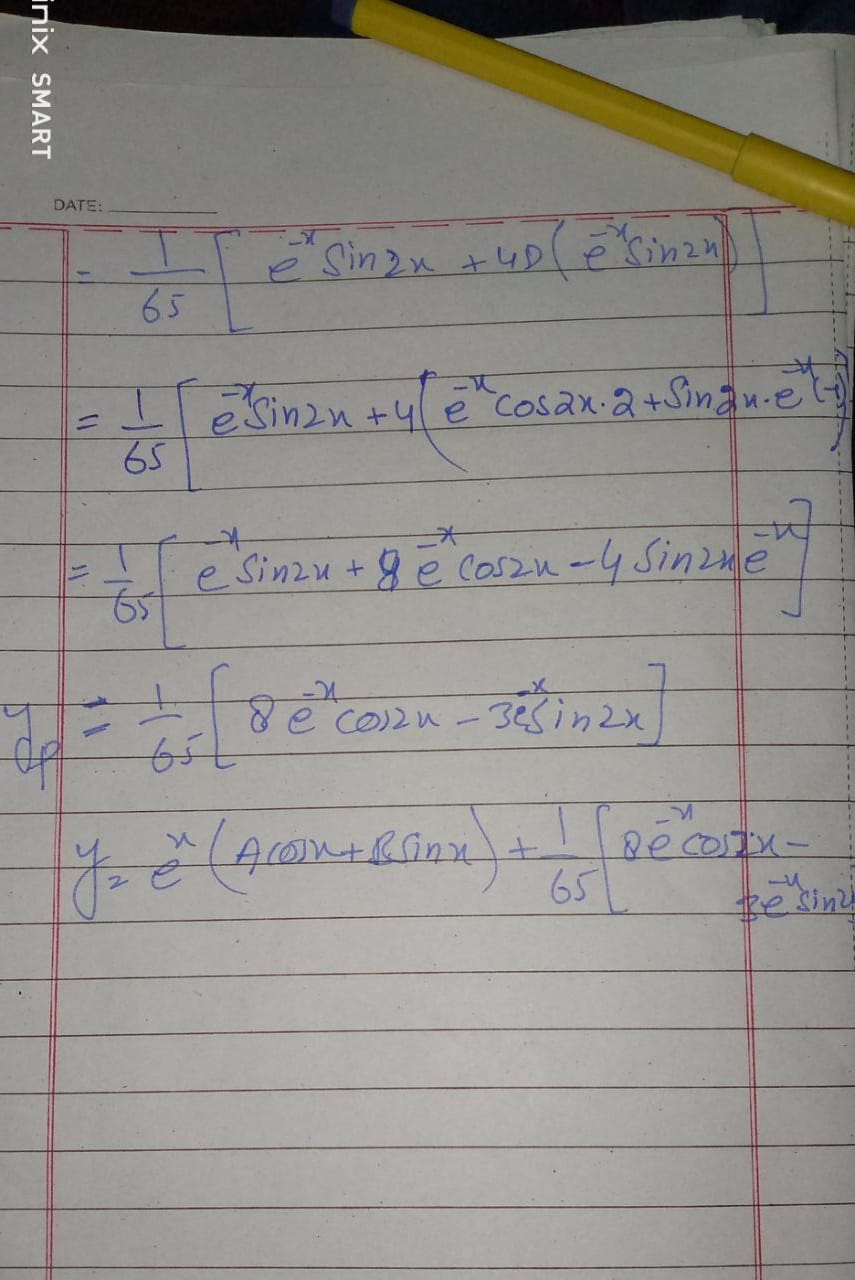 inix SMART
DATE:
= 1/65 [ e^-x Sin2x + 4D ( e^-x Sin2x ) ]
= 1/65 [ e^-x Sin2x + 4 ( e^-x Cos2x · 2 + Sin2x · e^-x (-1) )
= 1/65 [ e^-x Sin2x + 8 e^-x Cos2x - 4 Sin2x e^-x ]
yp = 1/65 [ 8 e^-x cos2x - 3e^-x Sin2x ]
y = e^x ( Acosx + Bsinx ) + 1/65 [ 8e^-x cos2x -
3e^-x sin2x